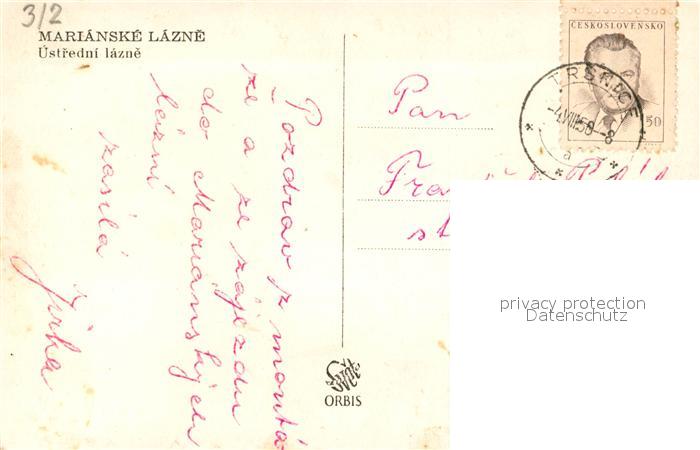 3/2
MARIÁNSKÉ LÁZNĚ
Ústřední lázně
Pozdrav z montá
že a ze zájezdu
do Mariánských
lázní
zasílá
Jirka
ORBIS
ČESKOSLOVENSKO
50
TRŠNICE
-4.VIII.50-8
a
Pan
privacy protection
Datenschutz